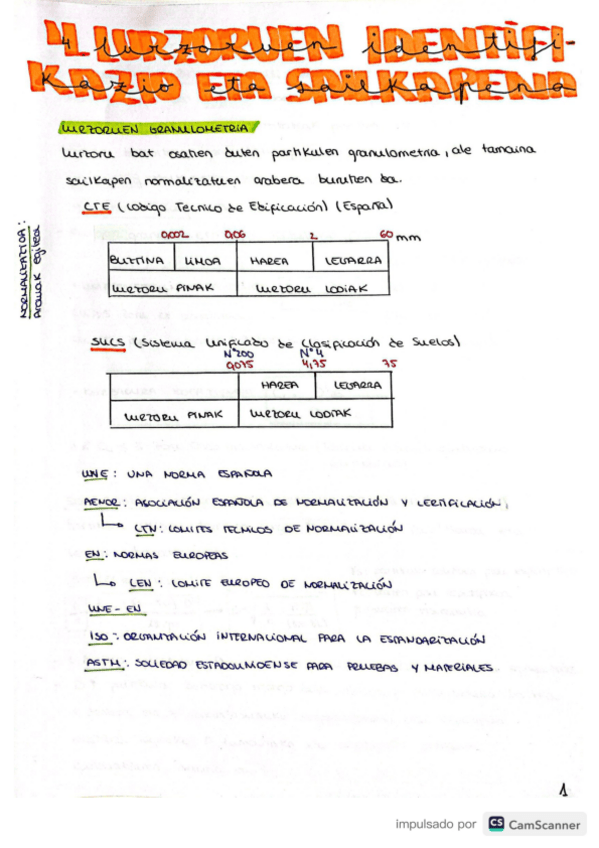 4. LURZORUEN IDENTIFI-
KAZIO ETA SAILKAPENA
LURZORUEN GRANULOMETRIA
Lurzoru bat osatzen duten partikulen granulometria, ale tamaina
sailkapen normalizatuen arabera burutzen da.
NORMALIZATIOA:
Arauak egitea
CTE (Codigo Tecnico de Edificación) (España)
0,002 0,06 2 60 mm
BUZTINA LIMOA HAREA LEGARRA
LURZORU FINAK LURZORU LODIAK
SUCS (Sistema Unificado de Clasificación de Suelos)
Nº200 Nº4
0,075 4,75 75
HAREA LEGARRA
LURZORU FINAK LURZORU LODIAK
UNE: UNA NORMA ESPAÑOLA
AENOR: ASOCIACIÓN ESPAÑOLA DE NORMALIZACIÓN Y CERTIFICACIÓN,
CTN: COMITES TECNICOS DE NORMALIZACIÓN
EN: NORMAS EUROPEAS
CEN: COMITE EUROPEO DE NORMALIZACIÓN
UNE-EN
ISO: ORGANIZACIÓN INTERNACIONAL PARA LA ESTANDARIZACIÓN
ASTM: SOCIEDAD ESTADOUNIDENSE PARA PRUEBAS Y MATERIALES
1
impulsado por CS CamScanner